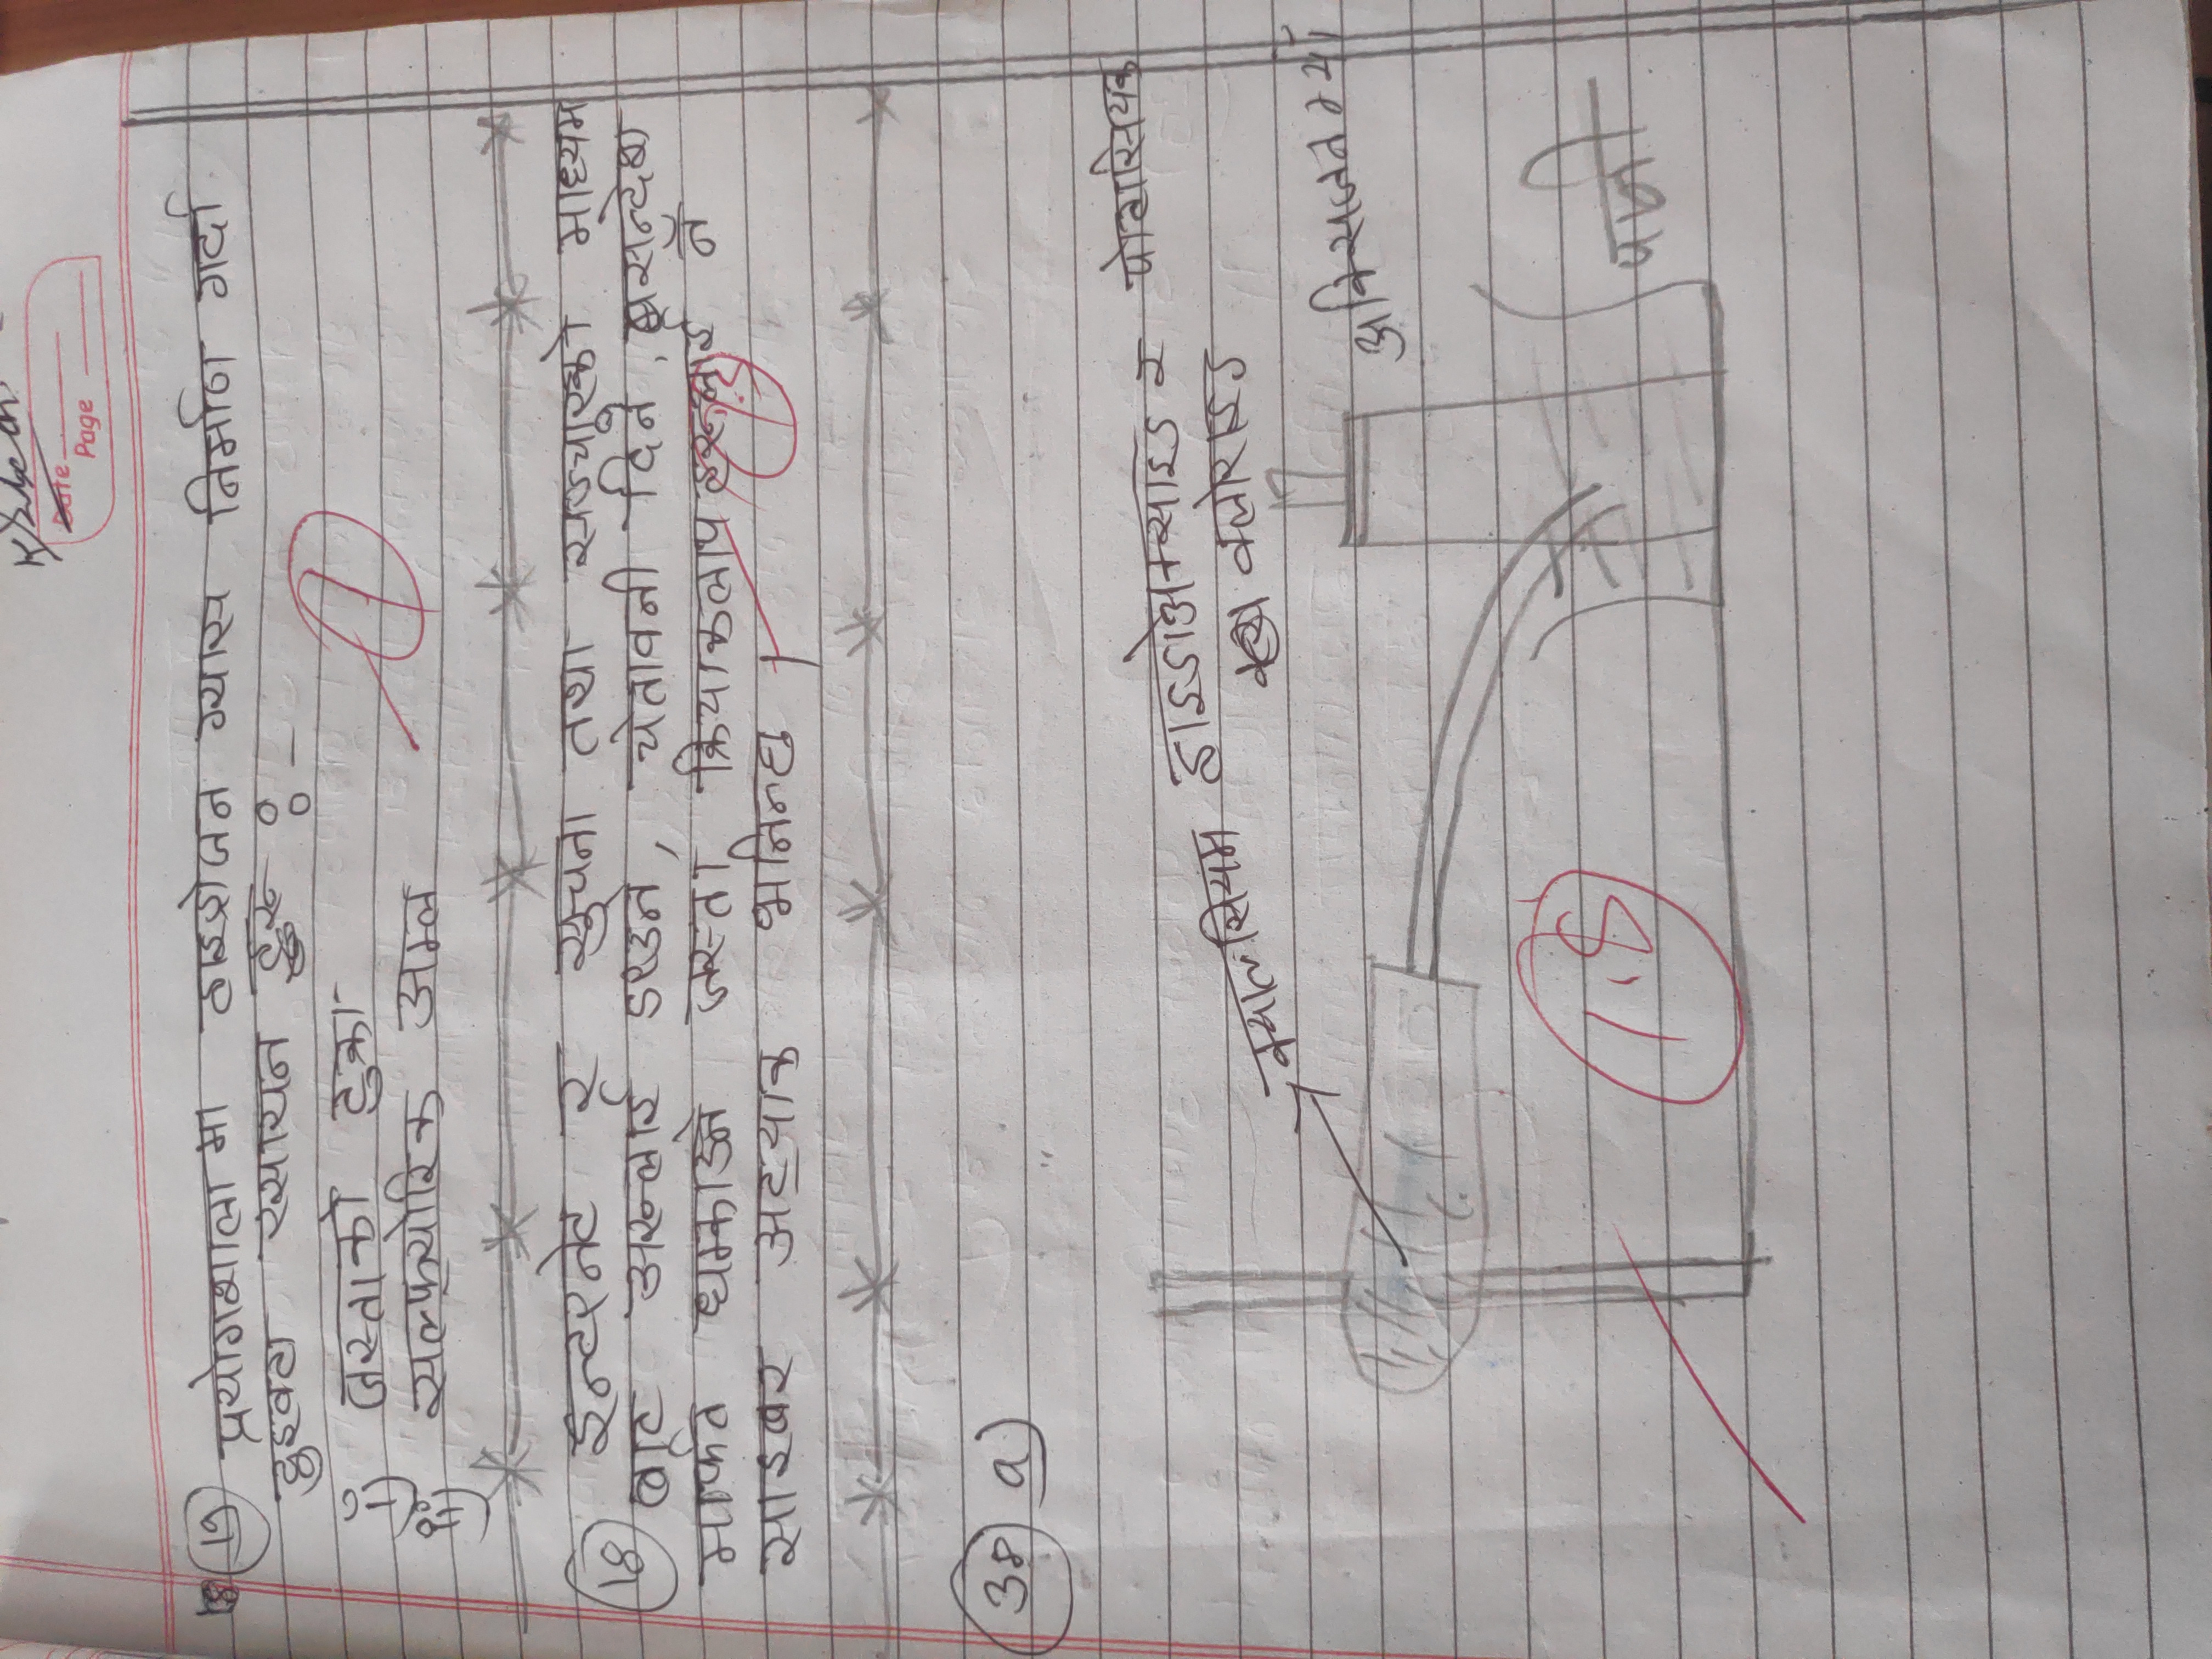 Date
Page
19 प्रयोगशाला मा हाइड्रोजन ग्यास निर्माण गर्दा
दुइवटा रसायन हरु :-
i) जस्ताको टुक्रा
ii) सल्फ्योरिक अम्ल
1
18 इन्टरनेट र सुचना तथा सञ्चारको माध्यम
बाट अरुलाई डराउने, चेतावनी दिने,
मार्फत धम्काउने जस्ता क्रियाकलाप हरुलाई नै
साइबर अट्याक भनिन्छ ।
38 a)
क्यालसियम हाइडोअक्साइड र पोटासियम
क्लोराइड
अक्सिजन ग्याँ
1.5
पानी